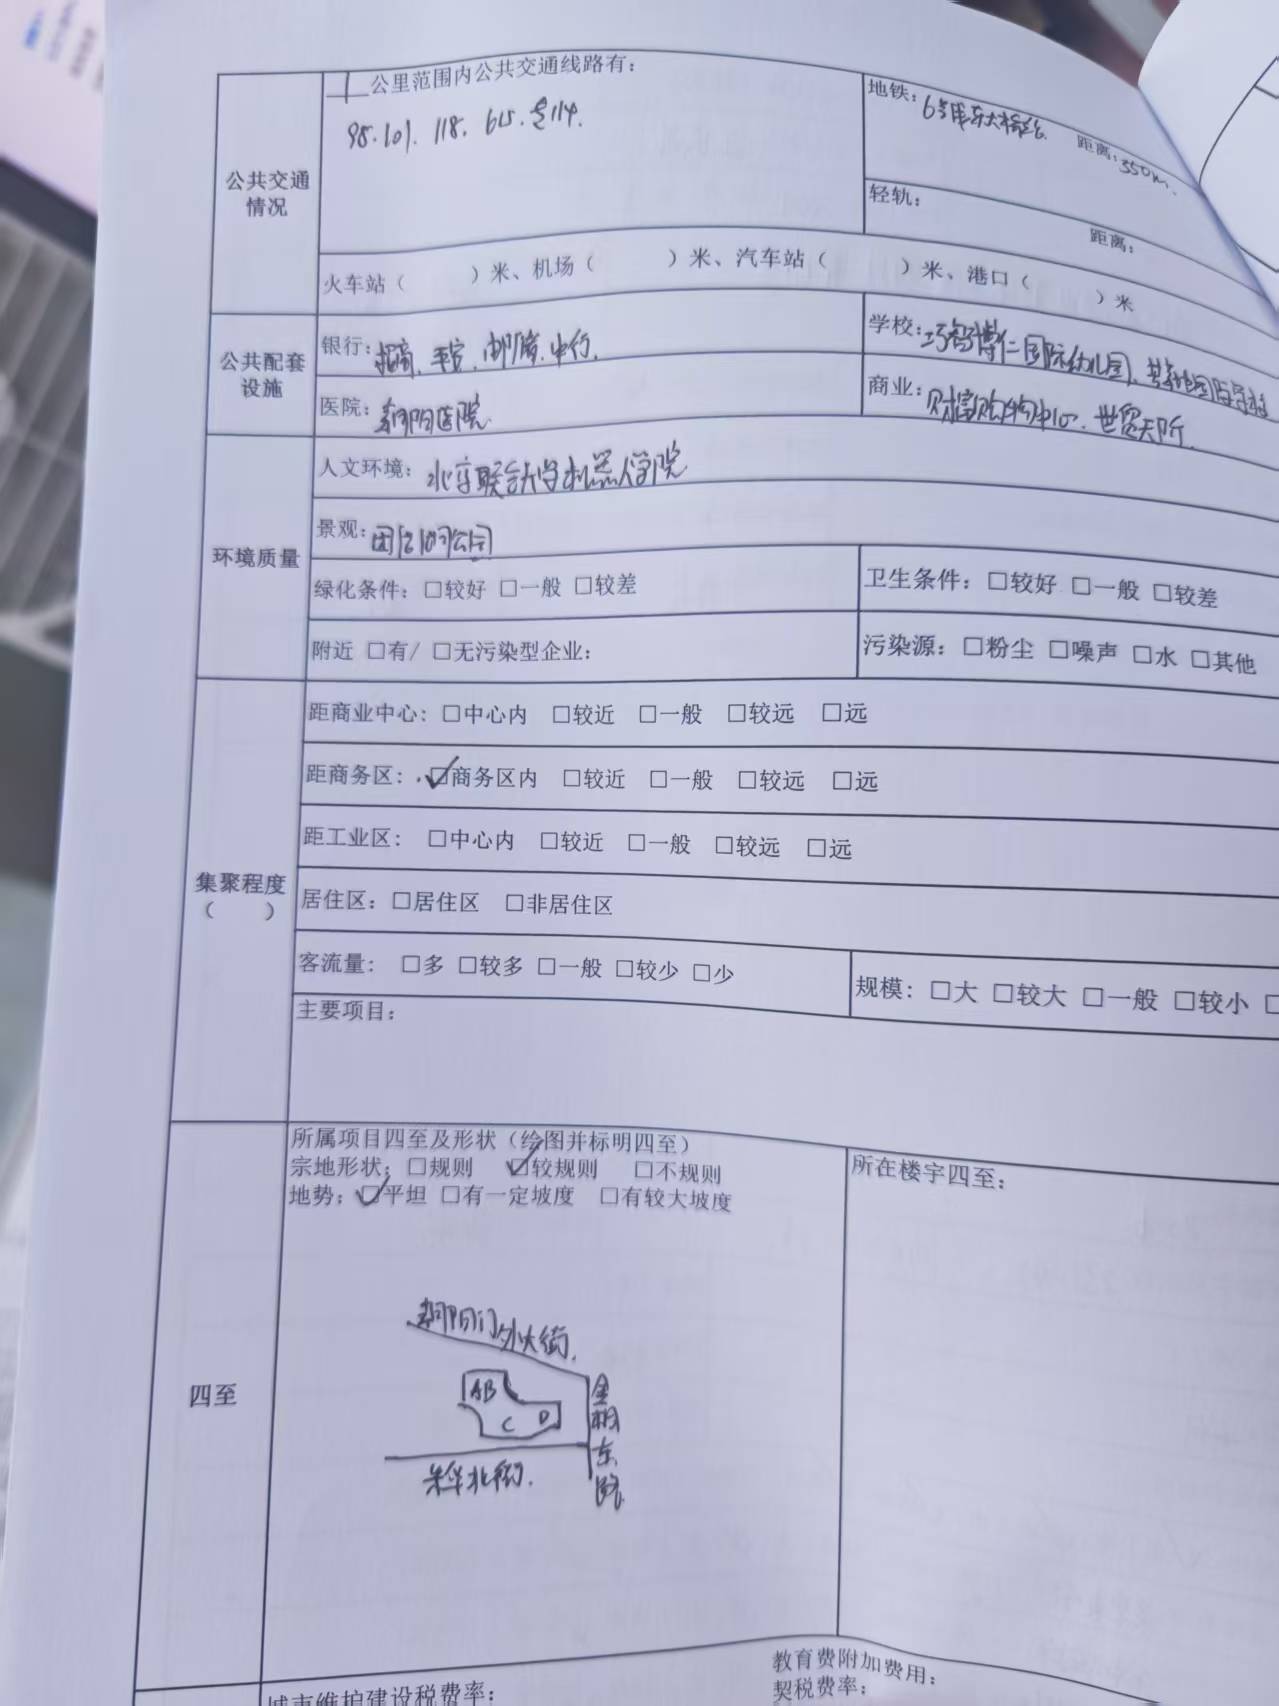 1 公里范围内公共交通线路有：
98. 101. 118. 615. 专114.
地铁：6号线东大桥站. 距离：350m.
公共交通情况
轻轨： 距离：
火车站（ ）米、机场（ ）米、汽车站（ ）米、港口（ ）米
公共配套设施
银行：招商、平安、邮储、中行.
学校：巧智博仁国际幼儿园、国际学校
医院：朝阳医院.
商业：财富购物中心、世贸天阶.
环境质量
人文环境：北京联合大学机器人学院
景观：团结湖公园
绿化条件：□较好 □一般 □较差
卫生条件：□较好 □一般 □较差
附近 □有/ □无污染型企业：
污染源：□粉尘 □噪声 □水 □其他
集聚程度
（ ）
距商业中心：□中心内 □较近 □一般 □较远 □远
距商务区：☑商务区内 □较近 □一般 □较远 □远
距工业区：□中心内 □较近 □一般 □较远 □远
居住区：□居住区 □非居住区
客流量：□多 □较多 □一般 □较少 □少
规模：□大 □较大 □一般 □较小 □
主要项目：
四至
所属项目四至及形状（绘图并标明四至）
宗地形状：□规则 ☑较规则 □不规则
地势：☑平坦 □有一定坡度 □有较大坡度
所在楼宇四至：
朝阳门外大街.
AB
C D
金桐东路
北街.
城市维护建设税费率：
教育费附加费用：
契税费率：